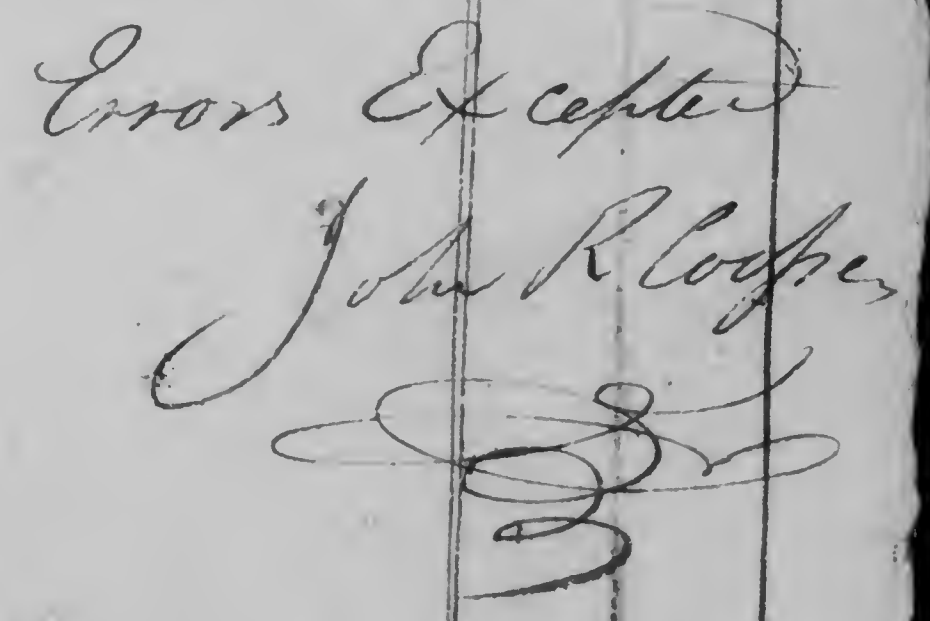 Errors Excepted
John R Cooper